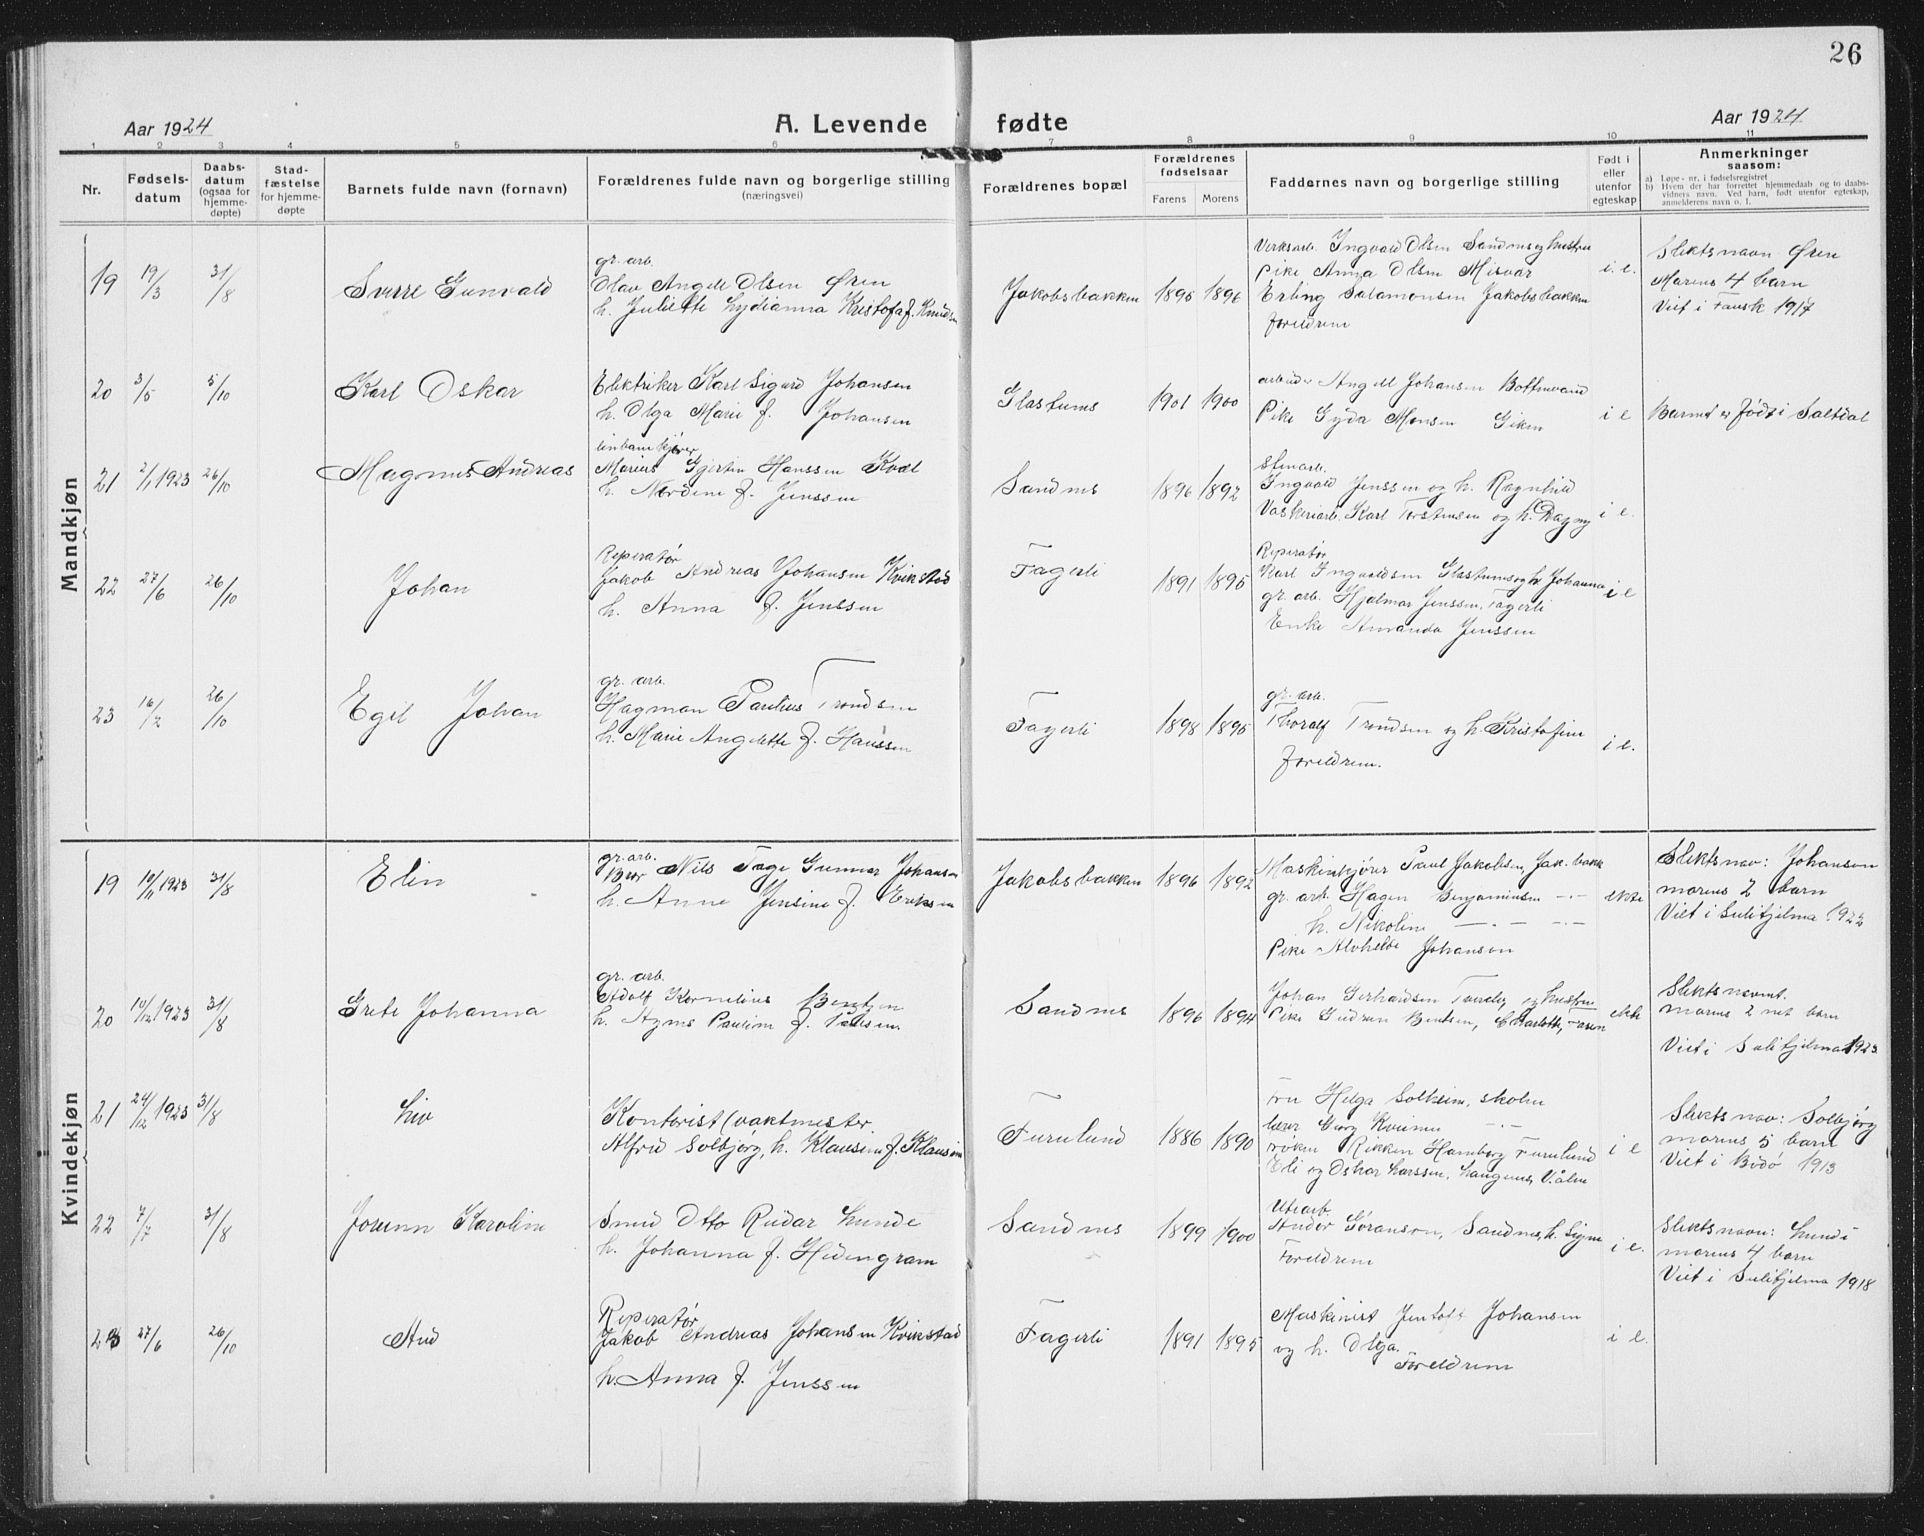 26
Aar 1924
A. Levende fødte
Aar 1924
1 2 3 4 5 6 7 8 9 10 11
Nr.
Fødsels-
datum
Daabs-
datum
(ogsaa for
hjemme-
døpte)
Stad-
fæstelse
for hjemme-
døpte
Barnets fulde navn (fornavn)
Forældrenes fulde navn og borgerlige stilling
(næringsvei)
Forældrenes bopæl
Forældrenes
fødselsaar
Farens Morens
Faddernes navn og borgerlige stilling
Født i
eller
utenfor
egteskap
Anmerkninger
saasom:
a) Løpe-nr. i fødselsregistret
b) Hvem der har forrettet hjemmedaab og to daabs-
vidners navn. Ved barn, født utenfor egteskap,
anmelderens navn o. l.
Mandkjøn
19 19/3 31/8 Sverre Gunvald
gr. arb.
Olav Angell Olsen Øren
h. Juliette Lydianna Kristofa f. Knudsen
Jakobsbakken 1895 1896
Verksarb. Ingvald Olsen Sandnes og hustru
Pike Anna Olsen Misvær
Erling Salamonsen Jakobsbakken
Foreldrene
i e.
Slektsnavn Øren
Morens 4 barn
Viet i Fausk 1917
20 3/5 5/10 Karl Oskar
Elektriker Karl Sigurd Johansen
h. Olga Marie f. Johansen
Glastunes 1901 1900
arbeider Angell Johansen Bottnvand
Pike Gyda Monsen Giken
i e
Barnet er født i Saltdal
21 2/1 1923 26/10 Magnus Andreas
linbanekjører
Marius Gjertin Hanssen Kvæl
h. Nordine f. Jenssen
Sandnes 1896 1892
Stenarb.
Ingvald Jenssen og h. Ragnhild
Vaskeriarb. Karl Torstensen og h. Dagny
i e.
22 27/6 26/10 Johan
Reperatør
Jakob Andreas Johansen Kvikstad
h. Anna f. Jenssen
Fagerli 1891 1895
Reperatør
Karl Ingvaldsen Glastunes og h Johanna
gr. arb. Hjalmar Jenssen, Fagerli
Enke Amanda Jenssen
i e
23 16/2 26/10 Egil Johan
gr. arb.
Hagman Paulius Trondsen
h. Marie Angelette f. Hanssen
Fagerli 1898 1895
gr. arb.
Thoralf Trondsen og h. Kristofine
foreldrene.
i e.
Kvindekjøn
19 10/11 1923 31/8 Elin
gr. arb.
Nils Tage Gunnar Johanson
h. Anne Jensine f. Eriksen
Jakobsbakken 1896 1892
Maskinkjører Paul Jakobsen, Jak.bakk
gr. arb. Hagen Benjaminsen —·—
h. Nikoline —·— —·—
Pike Alvhilde Johanson
ekte
Slektsnav: Johanson
morens 2 barn
Viet i Sulitjelma 1922
20 10/12 1923 31/8 Grete Johanna
gr. arb.
Adolf Kornelius Bentzen
h. Agnes Pauline f. Pettersen
Sandnes 1896 1894
Johan Gerhardsen og hustru
Pike Gudrun Bentsen, Charlotte
ekte
Slektsnavnet.
morens 2net barn
Viet i Sulitjelma 1923
21 24/12 1923 31/8 Liv
Kontorist (vaktmester
Alfred Solbjørg, h. Klausine f. Klausen
Furulund 1886 1890
Fru Helga Solheim, skolen
lærer Georg Kvenne —·—
frøken Rikken Hamberg Furulund
Eli og Oskar Larssen, Langnes, Vålen
i e
Slektsnav: Solbjørg
morens 5 barn
Viet i Bodø 1913
22 7/7 31/8 Josunn Karoline
Smed Otto Reidar Lunde
h. Johanna f. Hedengram
Sandnes 1899 1900
Utearb.
Andor Göranson, Sandnes, h. Signe
Foreldrene
i e.
Slektsnavn: Lunde
morens 4 barn
Viet i Sulitjelma 1918
23 27/6 26/10 Aud
Reperatør
Jakob Andreas Johansen Kvikstad
h. Anna f. Jenssen
Fagerli 1891 1895
Maskinist Jentoft Johansen
og h. Olga.
Foreldrene
i e.